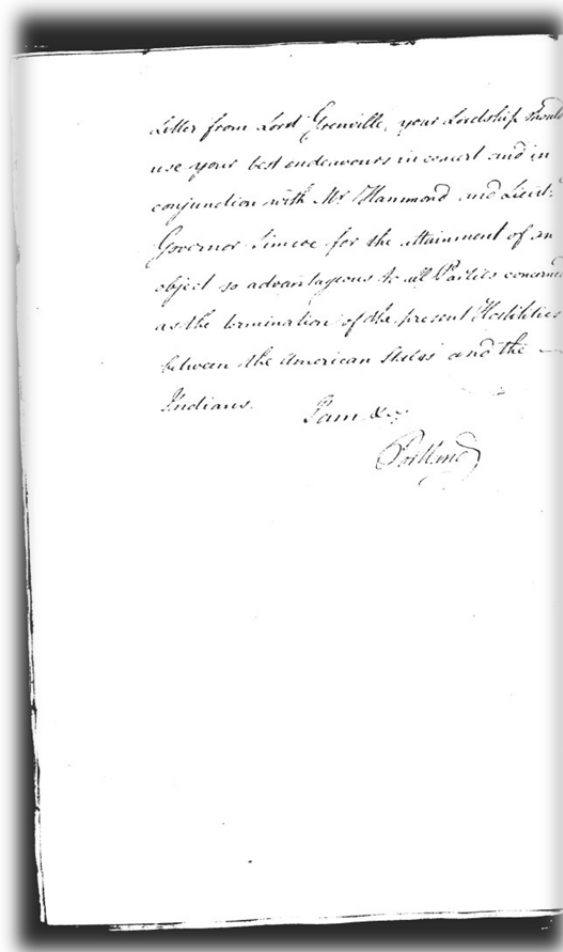 Letter from Lord Grenville, your Lordship should
use your best endeavours in concert and in
conjunction with Mr. Hammond and Lieut:
Governor Simcoe for the attainment of an
object so advantageous to all Parties concerned
as the termination of the present Hostilities
between the American States and the —
Indians. I am &c.
Portland